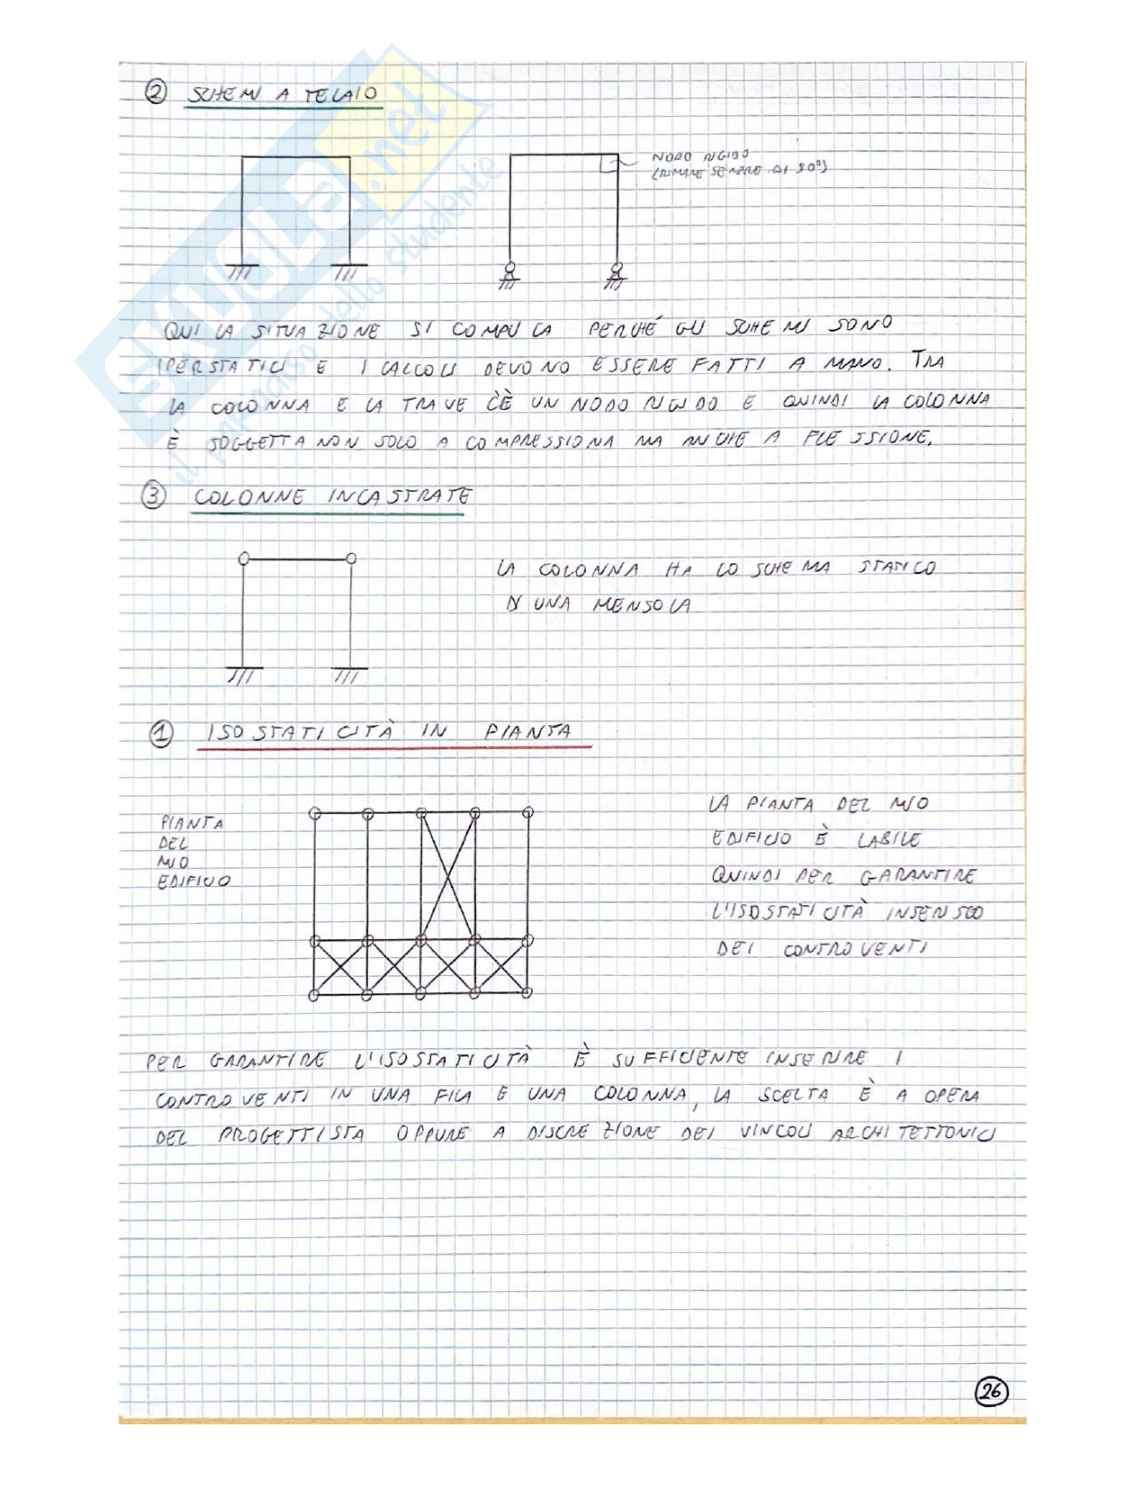 ② SCHEMI A TELAIO
NODO RIGIDO
(RIMANE SEMPRE DI 90°)
QUI LA SITUAZIONE SI COMPLICA PERCHÉ GLI SCHEMI SONO
IPERSTATICI E I CALCOLI DEVONO ESSERE FATTI A MANO. TRA
LA COLONNA E LA TRAVE C'È UN NODO RIGIDO E QUINDI LA COLONNA
È SOGGETTA NON SOLO A COMPRESSIONA MA ANCHE A FLESSIONE.
③ COLONNE INCASTRATE
LA COLONNA HA LO SCHEMA STATICO
DI UNA MENSOLA
① ISOSTATICITÀ IN PIANTA
PIANTA
DEL
MIO
EDIFICIO
LA PIANTA DEL MIO
EDIFICIO È LABILE
QUINDI PER GARANTIRE
L'ISOSTATICITÀ INSERISCO
DEI CONTROVENTI
PER GARANTIRE L'ISOSTATICITÀ È SUFFICIENTE INSERIRE I
CONTROVENTI IN UNA FILA E UNA COLONNA, LA SCELTA È A OPERA
DEL PROGETTISTA OPPURE A DISCREZIONE DEI VINCOLI ARCHITETTONICI
26
SKUOLA.net
il paradiso dello studente